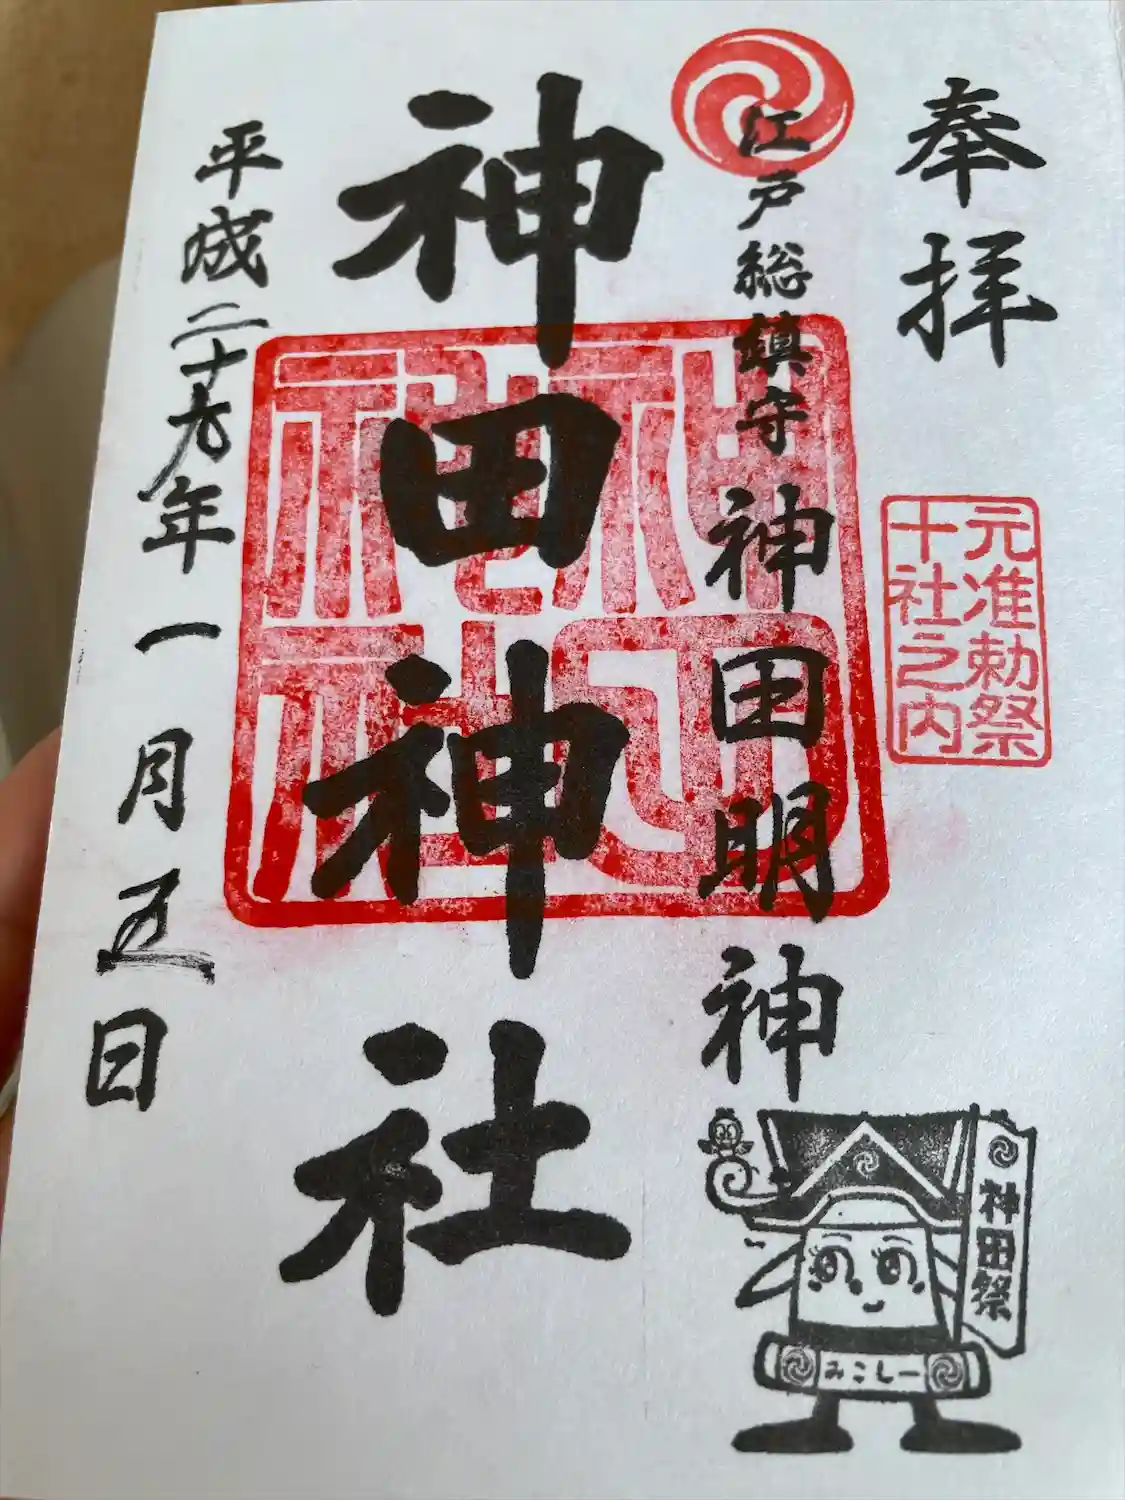 奉拝
元准勅祭
十社之内
江戸総鎮守 神田明神
神田神社
神田
神社
平成二十九年一月五日
神田祭
みこしー